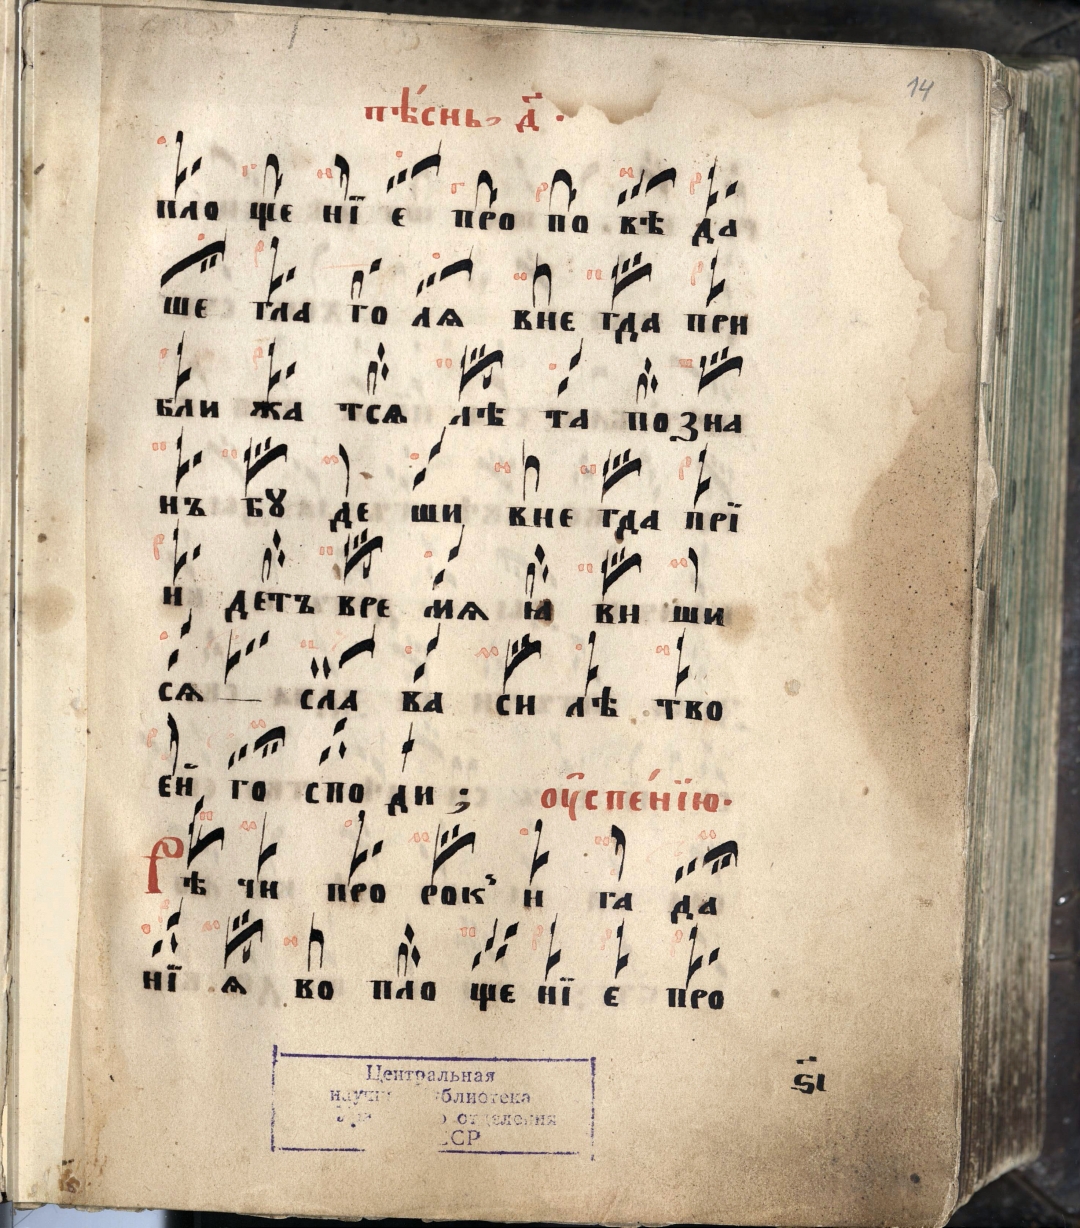 14
пѣ́снь, д҃·
пло ще нї є про по вѣ да
ше гла го лѧ вне гда при
бли жа тсѧ лѣ та по зна
нъ бꙋ де ши вне гда прї
и детъ вре мѧ ꙗ ви ши
сѧ сла ва си лѣ тво
ей го спо ди ;
оу҆спе́нїю·
Рѣ чи про рок и га да
нї ѧ во пло ще нї є про
ѕ҃і
Центральная
библиотека
отделения
ССР